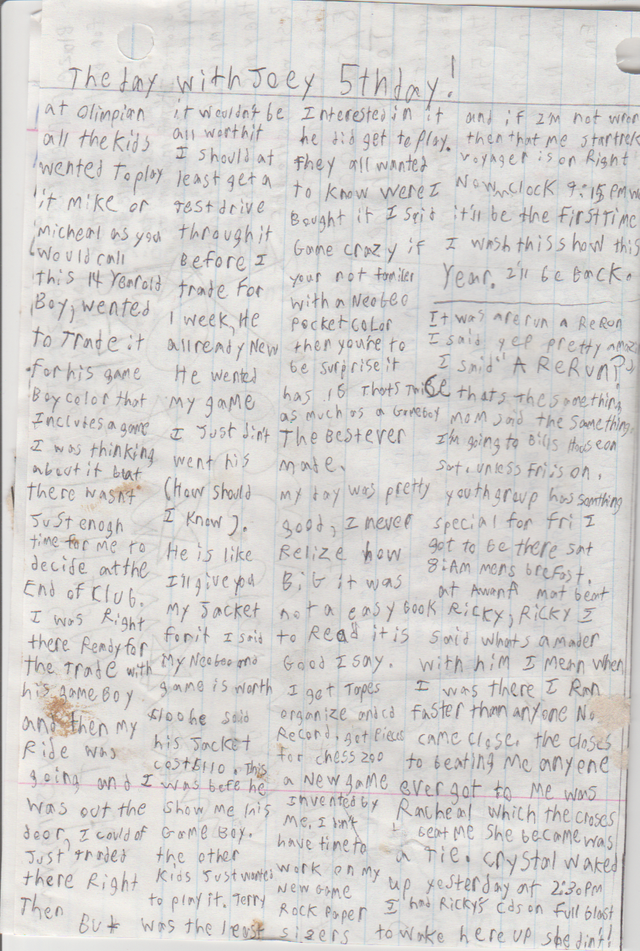 The day with Joey 5th day!
at Olimpian
all the Kids
wented to play
it mike or
micheal as you
would call
this 14 Year old
Boy, wented
to Trade it
for his game
Boy color that
Includes a game
I was thinking
about it but
there wasn't
Just enogh
time for me to
decide at the
End of Club.
I was Right
there Ready for
the Trade with
his game Boy
and then my
Ride was
going and I
was out the
door, I could of
Just traded
there Right
Then But
it wouldn't be
all worth it
I should at
least get a
test drive
through it
Before I
trade for
1 week, He
allready New
He wented
my game
I Just didn't
went his
(How should
I know).
He is like
I'll give you
my Jacket
for it I said
My NeoGeo and
game is worth
$100 he said
his Jacket
cost $110. This
was before he
show me his
Game Boy.
the other
Kids Just wanted
to play it. Terry
was the least
Interested in it
he did get to play.
they all wanted
to know were I
Bought it I said
Game crazy if
your not familer
with a NeoGeo
pocket color
then you're to
be surprise it
has 16 Thats Twice
as much as a Gameboy
The Best ever
made.
my day was pretty
good, I never
Relize how
BiG it was
not a easy book
to Read it is
Good I say.
I got Tapes
organize and cd
Record, got pieces
for chess 200
a New game
Invented by
me, I din't
have time to
work on my
New Game
Rock paper
sizers
and if I'm not wron
then that me startrek
voyager is on Right
Now clock 9:15 PM
it'll be the first time
I wash this show this
Year. I'll be Back.
It was a rerun a ReRun
I said yep pretty
I said "A ReRun?"
thats the something
mom said the something
I'm going to Bills House on
sat. unless fri is on,
youth group has somthing
special for fri I
got to be there sat
8:AM mens brefast.
at Awana mat beat
Ricky, Ricky I
said whats a mader
with him I mean when
I was there I Ran
faster than anyone No
came close. the closes
to beating me anyone
ever got to me was
Racheal which the closes
beat me she became was
a Tie. Crystal waked
up yesterday at 2:30PM
I had Ricky's Cds on full blast
to wake here up she din't!